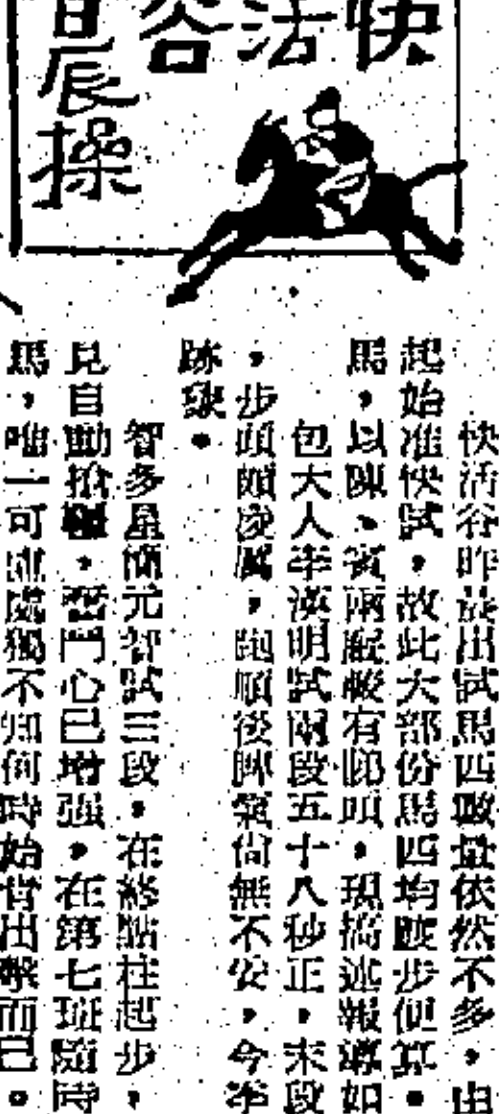 快活谷
晨操
快活谷昨放出試馬匹數量依然不多，由
起始准快試，故此大部份馬匹均踱步便算。
馬，以陳、賓兩廄較有睇頭，現摘述報導如
包大人李漢明試兩段五十八秒正，末段
，步頭頗凌厲，跑順後脾氣尚無不安，今季
跡象。
智多星簡元智試三段，在終點柱起步，
見自動搶，奮鬥心已增强，在第七班隨時
馬，唯一可慮處獨不知何時始肯出擊而已。